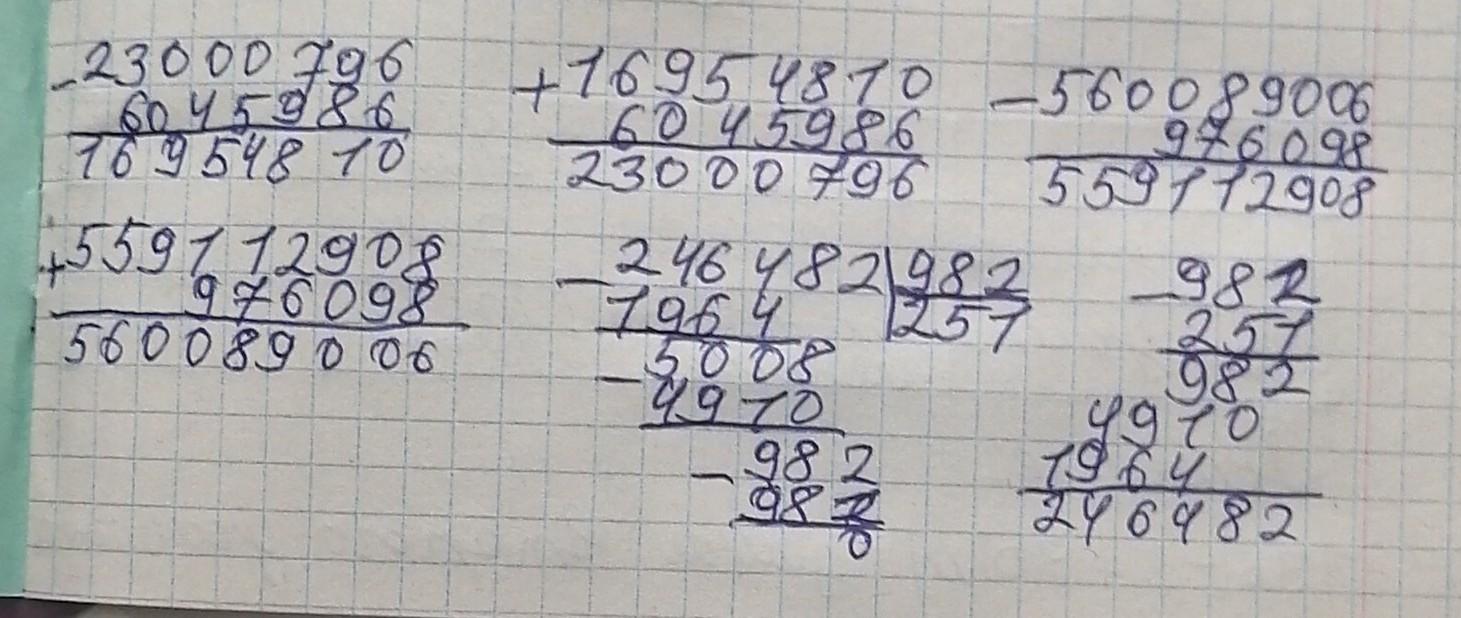 -23000796
6045986
16954810
+16954810
6045986
23000796
-560089006
976098
559112908
+559112908
976098
560089006
-246482|982
1964 257
5008
-4910
-982
982
0
-982
251
982
4910
1964
246482